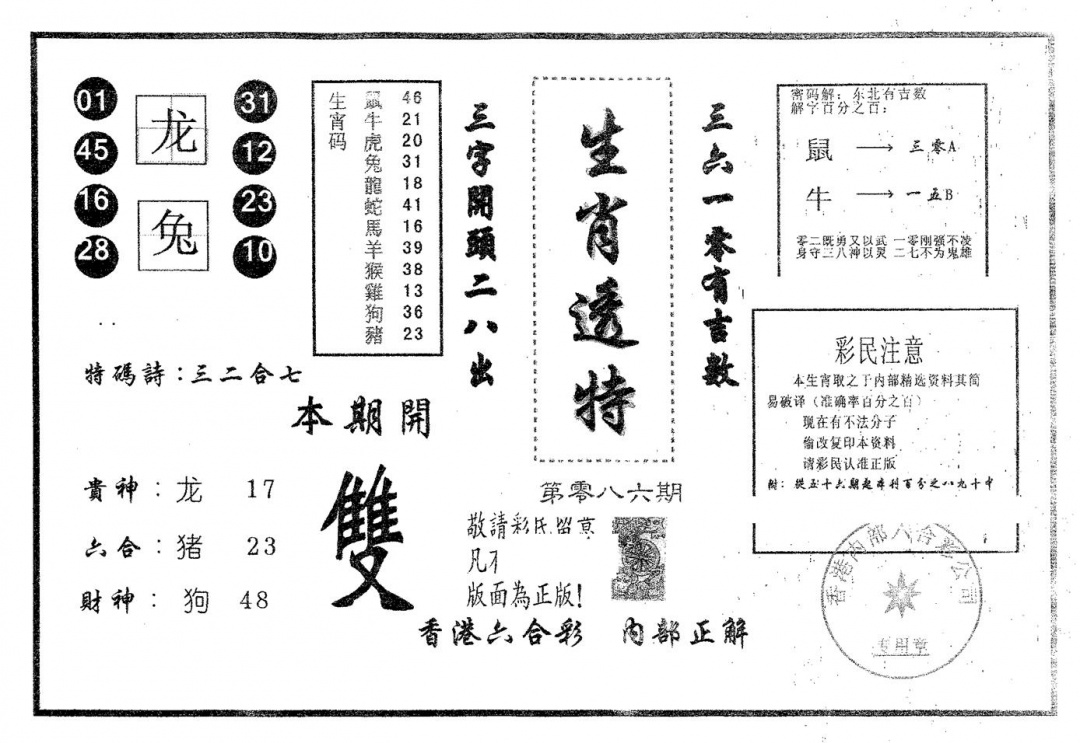 01
45
16
28
龙
兔
31
12
23
10
生宵码
鼠 46
牛 21
虎 20
兔 31
龍 18
蛇 41
馬 16
羊 39
猴 38
雞 13
狗 36
豬 23
三字開頭二八出
生肖透特
三六一零有吉数
密码解：东北有吉数
解字百分之百：
鼠 → 三零A
牛 → 一五B
零二既勇又以武 一零刚强不凌
身守三八神以灵 二七不为鬼雄
彩民注意
本生宵取之于内部精选资料其简
易破译（准确率百分之百）
现在有不法分子
偷改复印本资料
请彩民认准正版
附：从五十六期起
百分之八九十中
特碼詩：三二合七
本期開
雙
貴神：龙 17
六合：猪 23
財神：狗 48
第零八六期
敬請彩民留意
凡
版面為正版!
香港六合彩 内部正解
香港内部六合彩公司
专用章